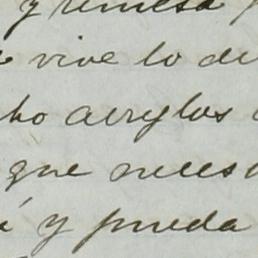 y remesa
vive lo de
ho arreglos
que neces
y pueda